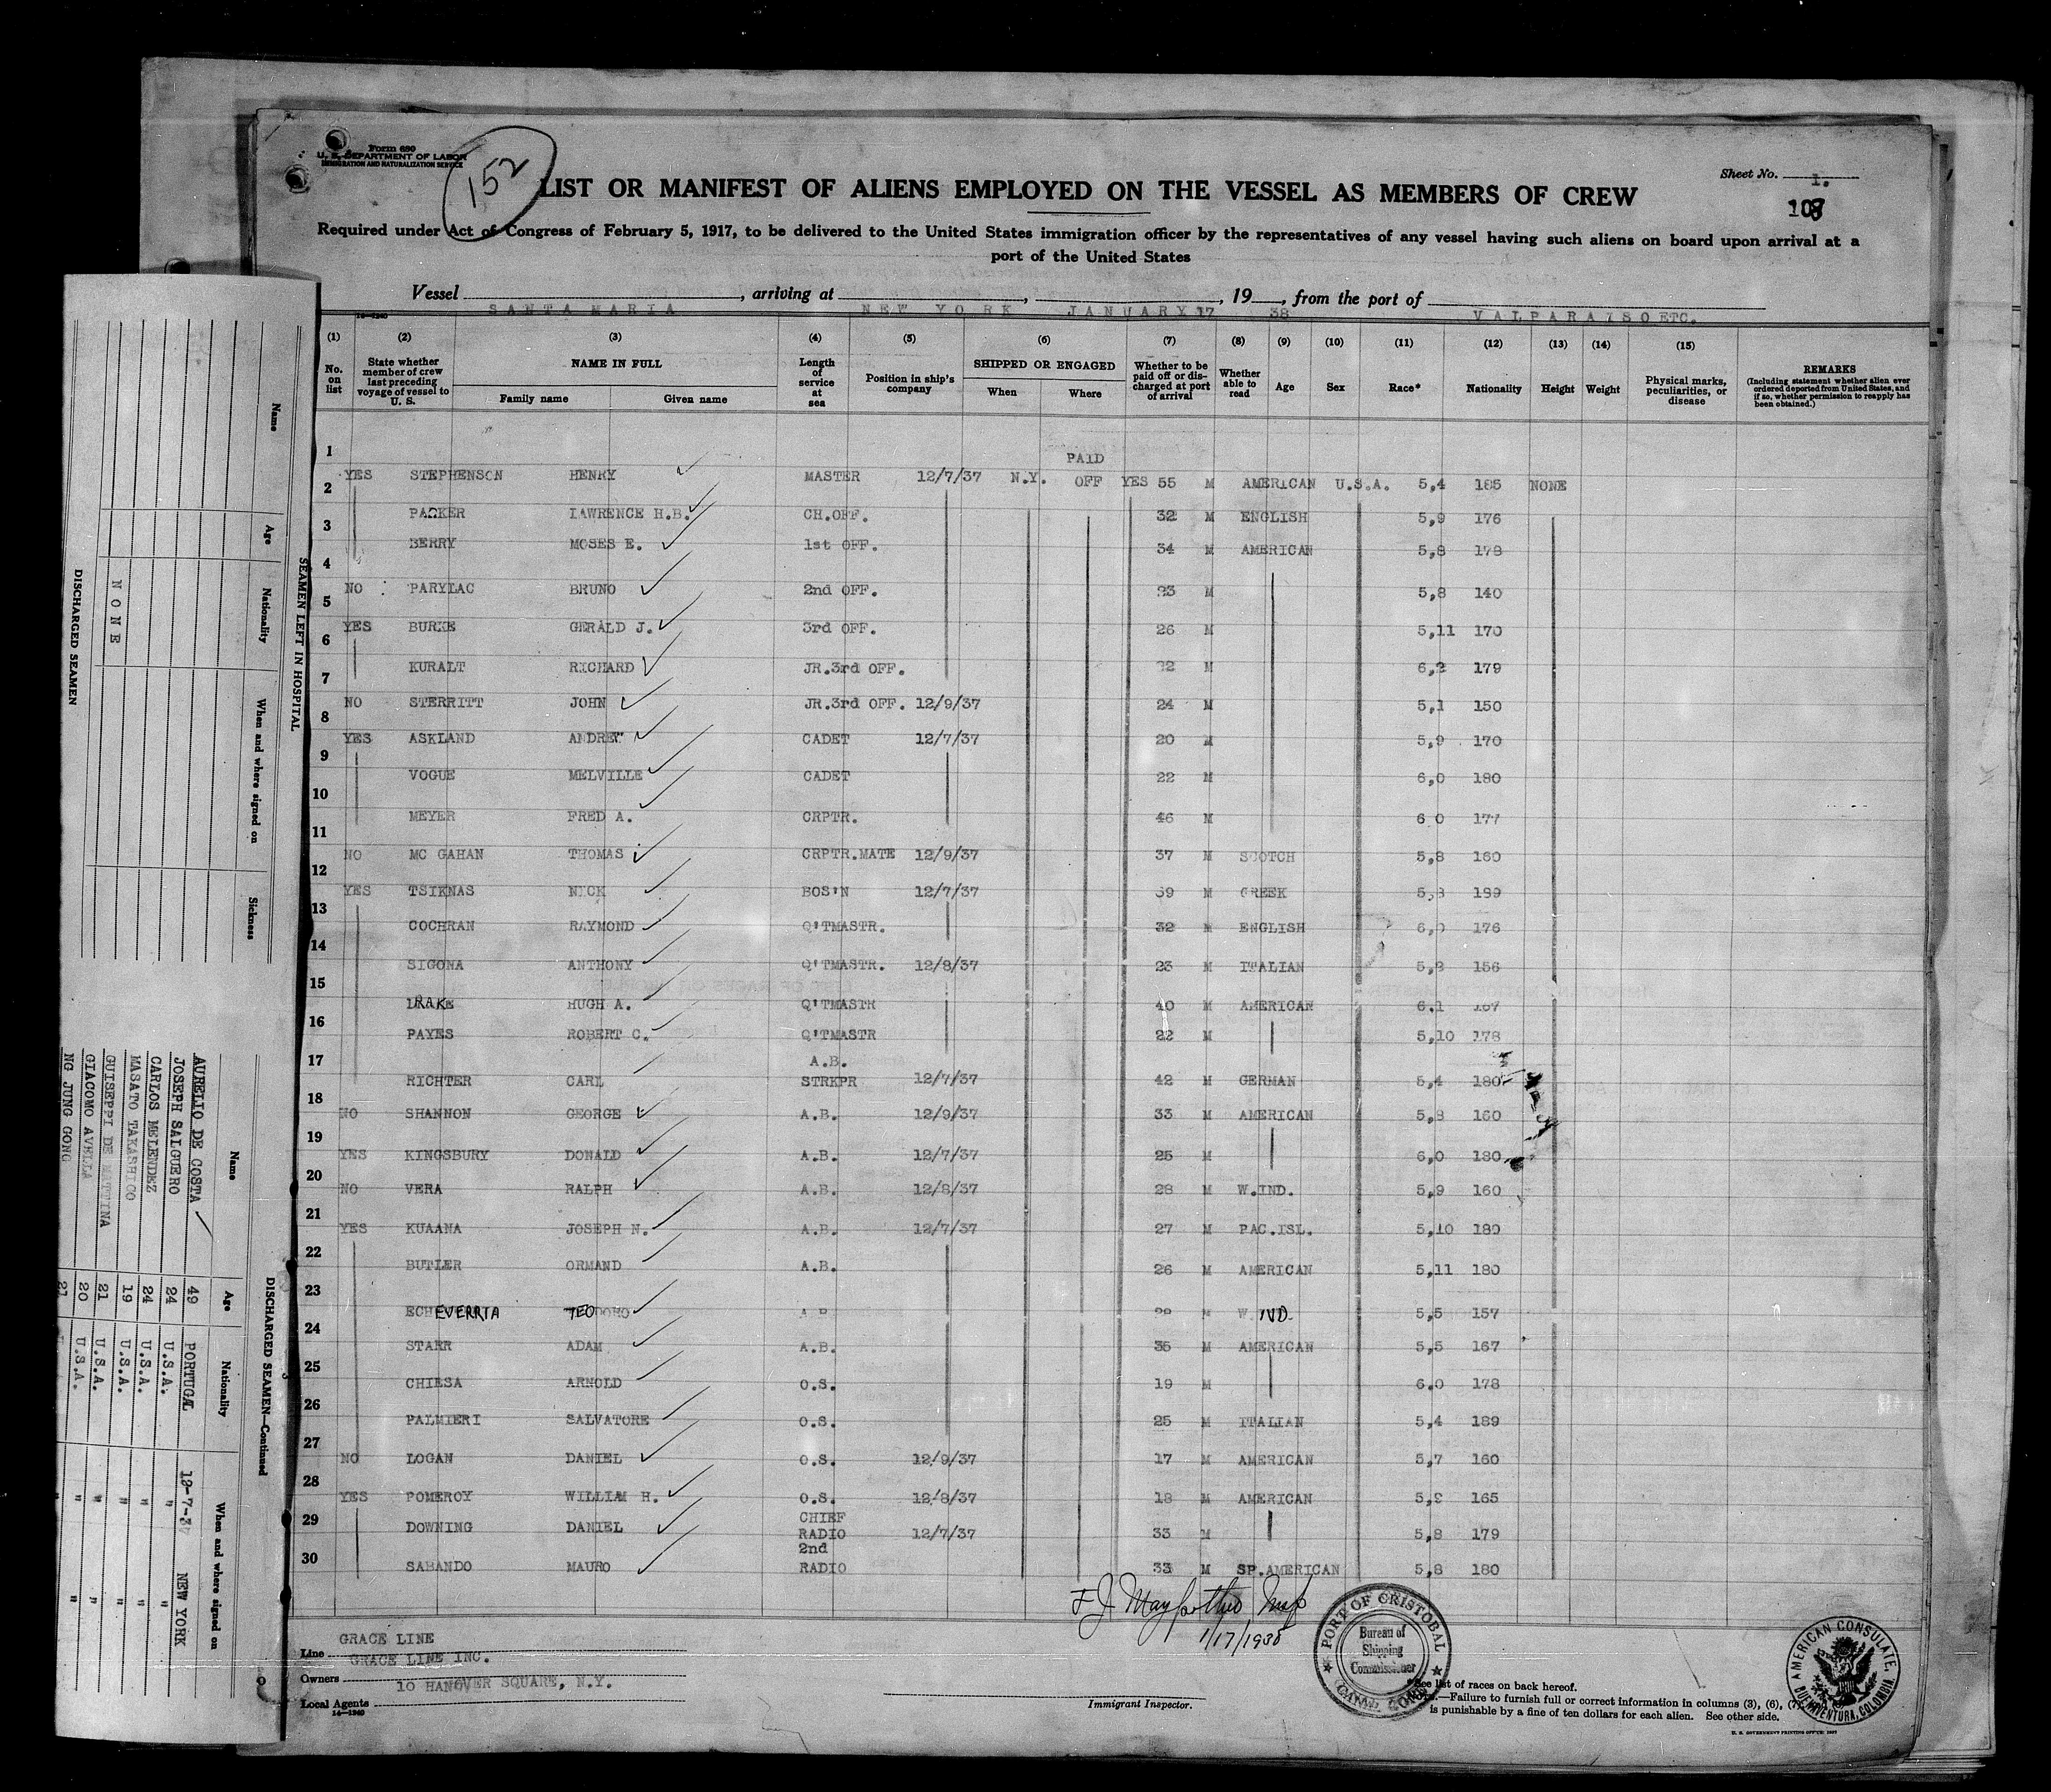 Form 680
U. S. DEPARTMENT OF LABOR
IMMIGRATION AND NATURALIZATION SERVICE
152
Sheet No. 1.
108
LIST OR MANIFEST OF ALIENS EMPLOYED ON THE VESSEL AS MEMBERS OF CREW
Required under Act of Congress of February 5, 1917, to be delivered to the United States immigration officer by the representatives of any vessel having such aliens on board upon arrival at a
port of the United States
Vessel SANTA MARIA, arriving at NEW YORK, JANUARY 17, 1938, from the port of VALPARAISO ETC.
14-1240
(1) (2) (3) (4) (5) (6) (7) (8) (9) (10) (11) (12) (13) (14) (15)
No. on list
State whether member of crew last preceding voyage of vessel to U. S.
NAME IN FULL
Family name Given name
Length of service at sea
Position in ship's company
SHIPPED OR ENGAGED
When Where
Whether to be paid off or discharged at port of arrival
Whether able to read
Age Sex Race* Nationality Height Weight
Physical marks, peculiarities, or disease
REMARKS
(Including statement whether alien ever ordered deported from United States, and if so, whether permission to reapply has been obtained.)
1
PAID
YES STEPHENSON HENRY MASTER 12/7/37 N.Y. OFF YES 55 M AMERICAN U.S.A. 5,4 185 NONE
2
PACKER LAWRENCE H.B. CH.OFF. 32 M ENGLISH 5,9 176
3
BERRY MOSES E. 1st OFF. 34 M AMERICAN 5,8 178
4
NO PARYLAC BRUNO 2nd OFF. 23 M 5,8 140
5
YES BURKE GERALD J. 3rd OFF. 26 M 5,11 170
6
KURALT RICHARD JR.3rd OFF. 22 M 6,2 179
7
NO STERRITT JOHN JR.3rd OFF. 12/9/37 24 M 5,1 150
8
YES ASKLAND ANDREW CADET 12/7/37 20 M 5,9 170
9
VOGUE MELVILLE CADET 22 M 6,0 180
10
MEYER FRED A. CRPTR. 46 M 6 0 177
11
NO MC GAHAN THOMAS CRPTR.MATE 12/9/37 37 M SCOTCH 5,8 160
12
YES TSIKNAS NICK BOS'N 12/7/37 39 M GREEK 5,8 199
13
COCHRAN RAYMOND Q'TMASTR. 32 M ENGLISH 6,0 176
14
SIGONA ANTHONY Q'TMASTR. 12/8/37 23 M ITALIAN 5,8 156
15
DRAKE HUGH A. Q'TMASTR 40 M AMERICAN 6.1 167
16
PAYES ROBERT C. Q'TMASTR 22 M 5,10 178
17
A.B.
RICHTER CARL STRKPR 12/7/37 42 M GERMAN 5,4 180
18
NO SHANNON GEORGE A.B. 12/9/37 33 M AMERICAN 5,8 160
19
YES KINGSBURY DONALD A.B. 12/7/37 25 M 6,0 180
20
NO VERA RALPH A.B. 12/8/37 28 M W.IND. 5,9 160
21
YES KUAANA JOSEPH N. A.B. 12/7/37 27 M PAC.ISL. 5,10 189
22
BUTLER ORMAND A.B. 26 M AMERICAN 5,11 180
23
ECHEVERRIA TEODORO A.B. M W. IND. 5,5 157
24
STARR ADAM A.B. 35 M AMERICAN 5,5 167
25
CHIESA ARNOLD O.S. 19 M 6.0 178
26
PALMIERI SALVATORE O.S. 25 M ITALIAN 5,4 189
27
NO LOGAN DANIEL O.S. 12/9/37 17 M AMERICAN 5,7 160
28
YES POMEROY WILLIAM H. O.S. 12/8/37 18 M AMERICAN 5,9 165
29
CHIEF
DOWNING DANIEL RADIO 12/7/37 33 M 5,8 179
30
2nd
SABANDO MAURO RADIO 33 M SP.AMERICAN 5,8 180
1/17/1938
Line GRACE LINE
Owners GRACE LINE INC.
Local Agents 10 HANOVER SQUARE, N.Y.
14-1240
Immigrant Inspector.
PORT OF CRISTOBAL
Bureau of
Shipping
Commissioner
CANAL ZONE
*See list of races on back hereof.
Note.—Failure to furnish full or correct information in columns (3), (6), (7)
is punishable by a fine of ten dollars for each alien. See other side.
U. S. GOVERNMENT PRINTING OFFICE
AMERICAN CONSULATE,
BUENAVENTURA, COLOMBIA.
SEAMEN LEFT IN HOSPITAL
Name Age Nationality When and where signed on Sickness
NONE
DISCHARGED SEAMEN
DISCHARGED SEAMEN—Continued
Name Age Nationality When and where signed on
AURELIO DE COSTA 49 PORTUGAL 12-7-37 NEW YORK
JOSEPH SALGUERO 24 U.S.A. " "
CARLOS MELENDEZ 24 U.S.A. " "
MASATO TAKASHICO 19 U.S.A. " "
GUISEPPI DE MATTINA 21 U.S.A. " "
GIACOMO AVELLA 20 U.S.A. " "
NG JUNG GONG